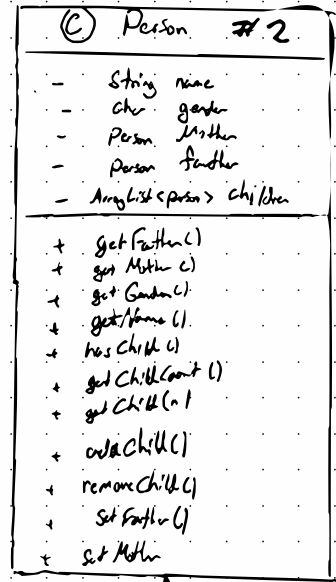 C Person #2
- String name
- char gender
- Person Mother
- person farther
- ArrayList <person> children
+ getFarther()
+ get Mother ()
+ get Gender()
+ get Name ()
+ has Child ()
+ get ChildCount ()
+ get Child(n t
+ add Child()
+ remove Child()
+ Set Farther ()
+ Set Mother